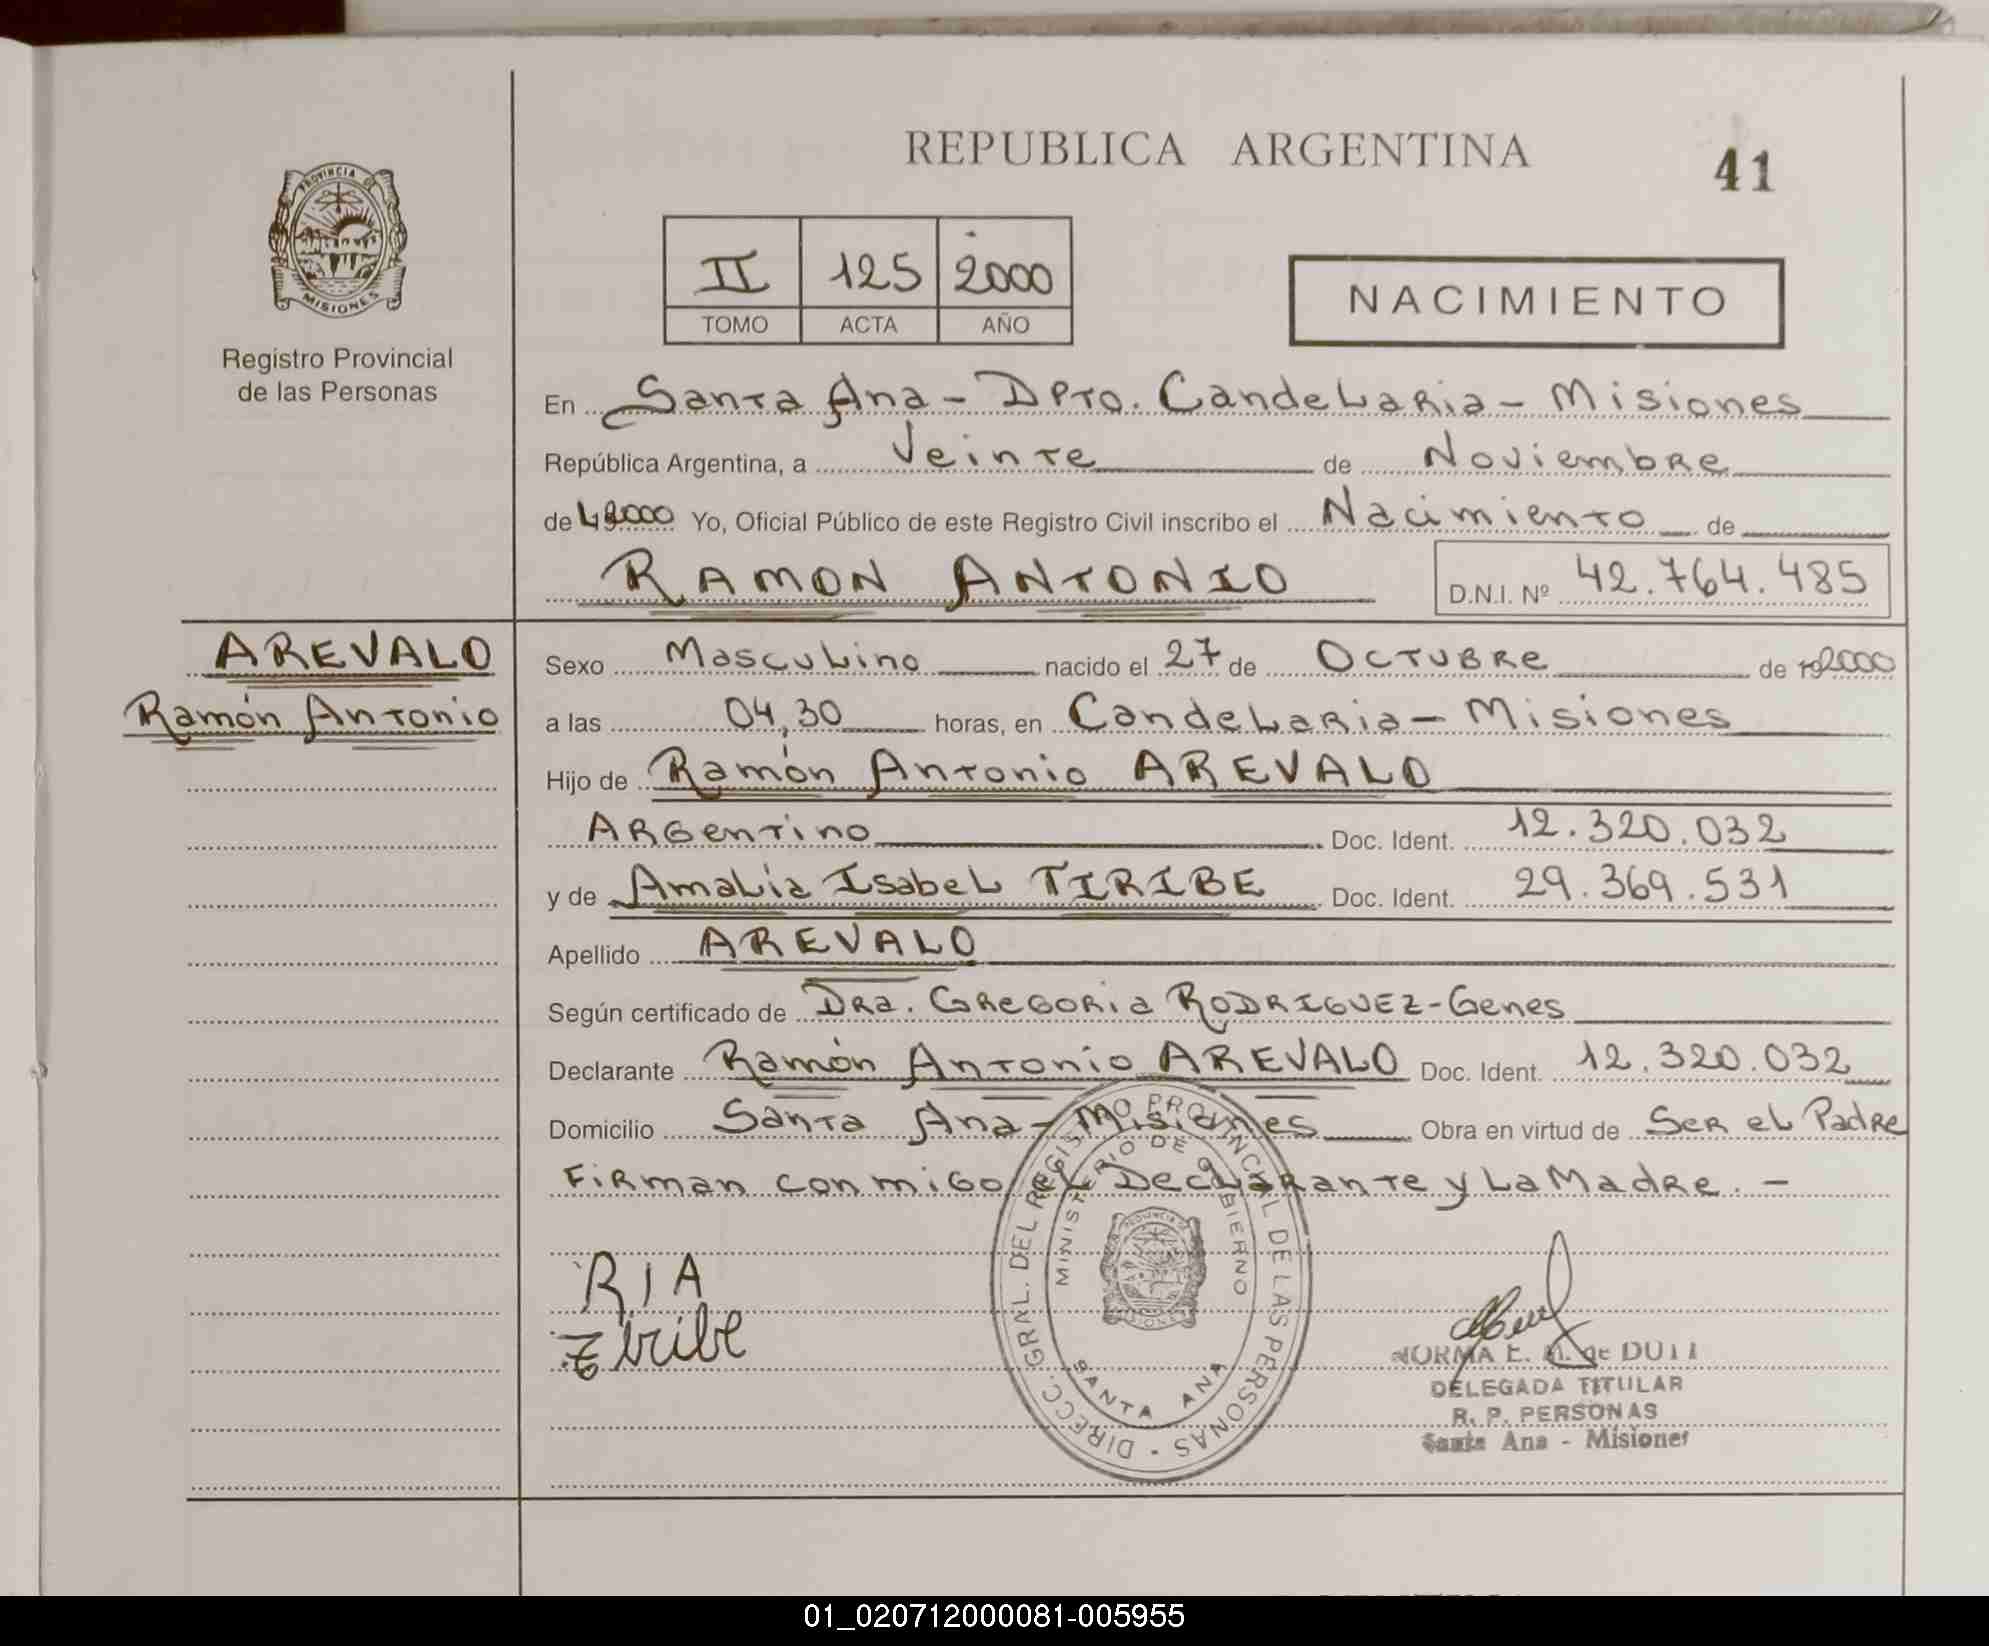 REPUBLICA ARGENTINA
41
PROVINCIA DE
MISIONES
Registro Provincial
de las Personas
II 125 2000
TOMO ACTA AÑO
NACIMIENTO
En Santa Ana - Dpto. Candelaria - Misiones
República Argentina, a Veinte de Noviembre
de 2000 Yo, Oficial Público de este Registro Civil inscribo el Nacimiento de
RAMON ANTONIO D.N.I. Nº 42.764.485
AREVALO
Ramón Antonio
Sexo Masculino nacido el 27 de OCTUBRE de 192000
a las 04,30 horas, en Candelaria - Misiones
Hijo de Ramón Antonio AREVALO
Argentino Doc. Ident. 12.320.032
y de Amalia Isabel TIRIBE Doc. Ident. 29.369.531
Apellido AREVALO
Según certificado de Dra. Gregoria RODRIGUEZ-Genes
Declarante Ramón Antonio AREVALO Doc. Ident. 12.320.032
Domicilio Santa Ana - Misiones Obra en virtud de Ser el Padre
Firman conmigo el Declarante y La Madre. -
R A
DIRECC. GRAL. DEL REGISTRO PROVINCIAL DE LAS PERSONAS -
MINISTERIO DE GOBIERNO
SANTA ANA
NORMA E. M. de DUTI
DELEGADA TITULAR
R. P. PERSONAS
Santa Ana - Misiones
01_020712000081-005955